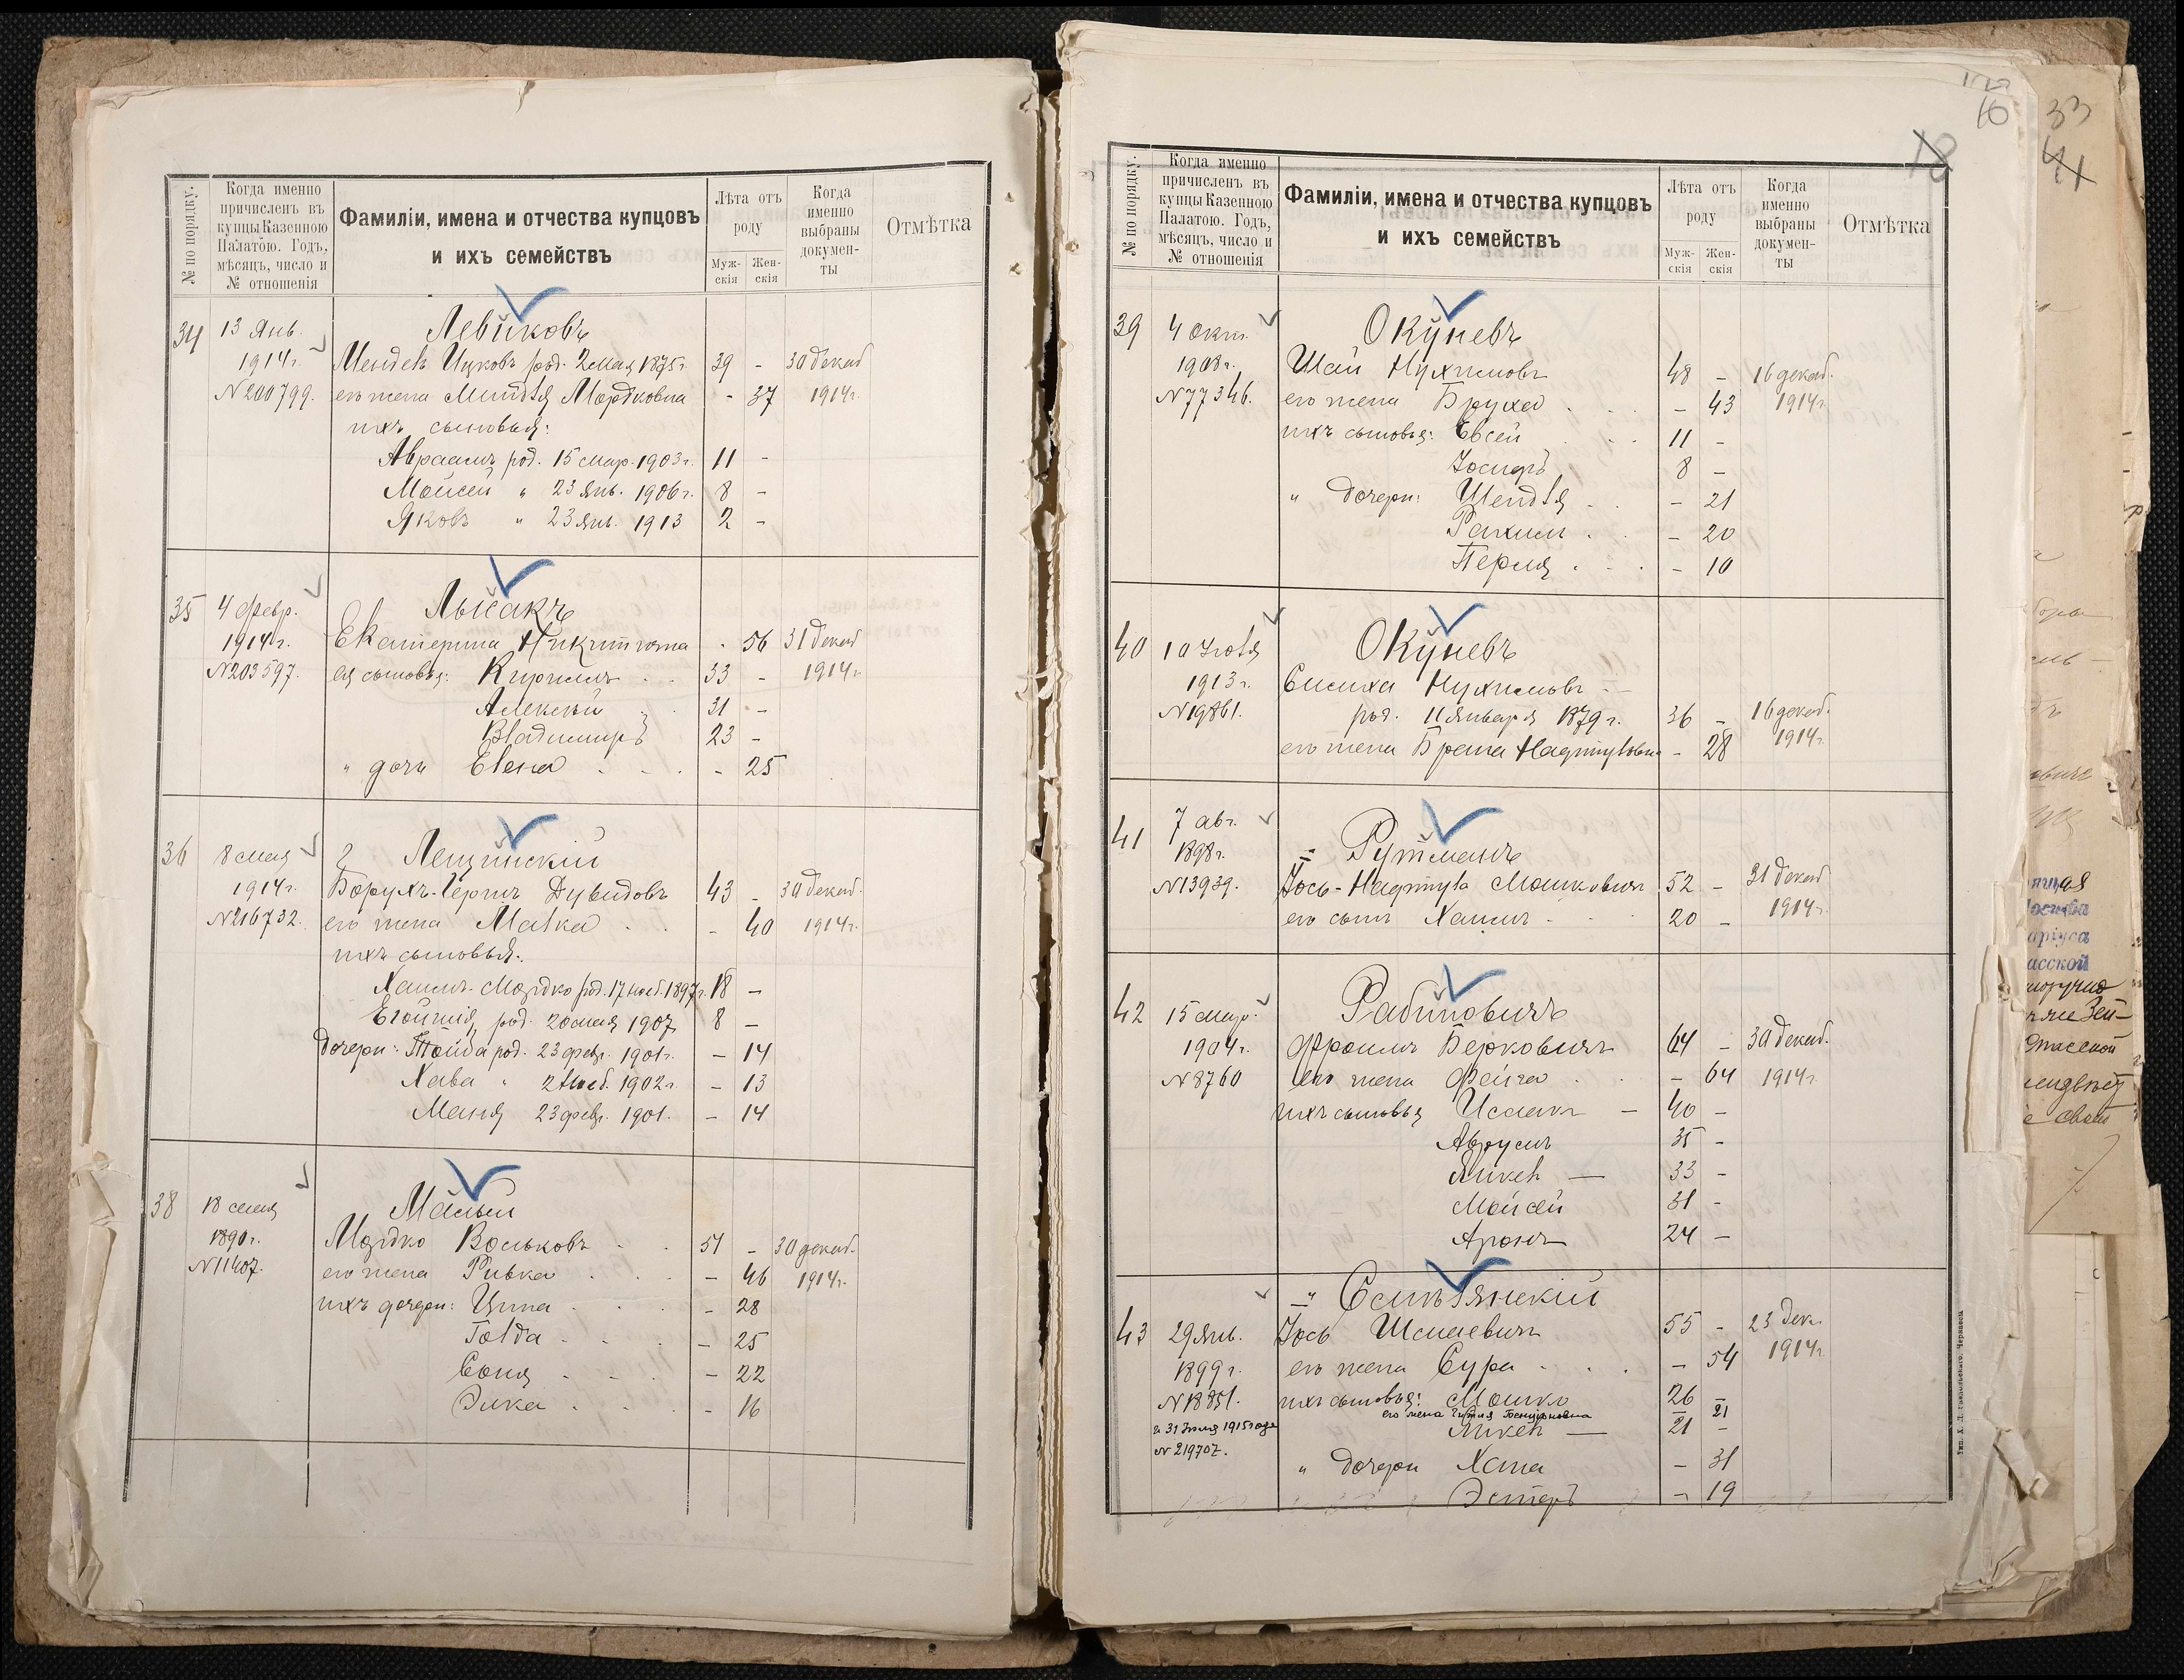 № по порядку.
Когда именно
причисленъ въ
купцы Казенною
Палатою. Годъ,
мѣсяцъ, число и
№ отношенія
Фамиліи, имена и отчества купцовъ
и ихъ семействъ
Лѣта отъ
роду
Муж-
скія
Жен-
скія
Когда
именно
выбраны
докумен-
ты
Отмѣтка
34 13 Янв. Левиковъ
1914 г. Мендель Ицковъ род. 2 мая 1875 г. 39 - 30 декаб
N 200799. его жена Миндля Мордковна - 37 1914 г.
ихъ сыновья:
Авраамъ род. 15 мар. 1903 г. 11 -
Мойсей " 23 Янв. 1906 г. 8 -
Яковъ " 23 Янв. 1913 2 -
35 4 февр. Лысакъ
1914 г. Екатерина Никитична - 56 31 декаб
N 203597. ея сыновья: Кириллъ 33 - 1914 г.
Алексѣй 31 -
Владимиръ 23 -
" дочь Елена - 25
36 8 мая 2 Лещинскій
1914 г. Борухъ-Гершъ Дувидовъ 43 - 30 декаб.
N 216732. его жена Малка - 40 1914 г.
ихъ сыновья:
Хаимъ-Мордко род. 17 нояб. 1897 г. 18 -
род. 20 мая 1907 8 -
дочери: род. 23 февр. 1901 г. - 14
Хава " 2 нояб. 1902 г. - 13
Маня 23 февр. 1901. - 14
38 18 мая Малый
1890 г. Мордко Вольковъ 51 - 30 декаб.
N 11407. его жена Ривка - 46 1914 г.
ихъ дочери: Ципа - 28
Голда - 25
Соня - 22
Элька - 16
10
18
33
41
№ по порядку.
Когда именно
причисленъ въ
купцы Казенною
Палатою. Годъ,
мѣсяцъ, число и
№ отношенія
Фамиліи, имена и отчества купцовъ
и ихъ семействъ
Лѣта отъ
роду
Муж-
скія
Жен-
скія
Когда
именно
выбраны
докумен-
ты
Отмѣтка
39 4 окт. Окуневъ
1908 г. Шай Нухимовъ 48 - 16 декаб.
N 77346. его жена Бруха - 43 1914 г.
ихъ сыновья: Евсей 11 -
Іосифъ 8 -
" дочери: Шендля - 21
Рахиль - 20
Перля - 10
40 10 Іюля Окуневъ
1913 г. Симха Нухимовъ
N 19861. род. 11 января 1879 г. 36 - 16 декаб.
его жена Брана Нафтуловна - 28 1914 г.
41 7 авг. Рутманъ
1898 г.
N 13939. Іось-Нафтула Мошковичъ 52 - 31 декаб
его сынъ Хаимъ 20 - 1914 г.
42 15 мар. Рабиновичъ
1904 г. Фроимъ Берковичъ 64 - 30 декаб.
N 8760 его жена Фейга - 64 1914 г.
ихъ сыновья Исаакъ - 40 -
Аврумъ 35 -
Янкель - 33 -
Мойсей 31 -
Аронъ 24 -
" Сѣмлянскій
43 29 Янв. Іось Шмаевичъ 55 - 23 Дек.
1899 г. его жена Сура - 54 1914 г.
N 18851. ихъ сыновья: Мошко 26 -
и 31 Іюля 1915 года его жена Гитля 21
N 219707. Янкель - 21 -
" дочери Хана - 31
Эстеръ - 19